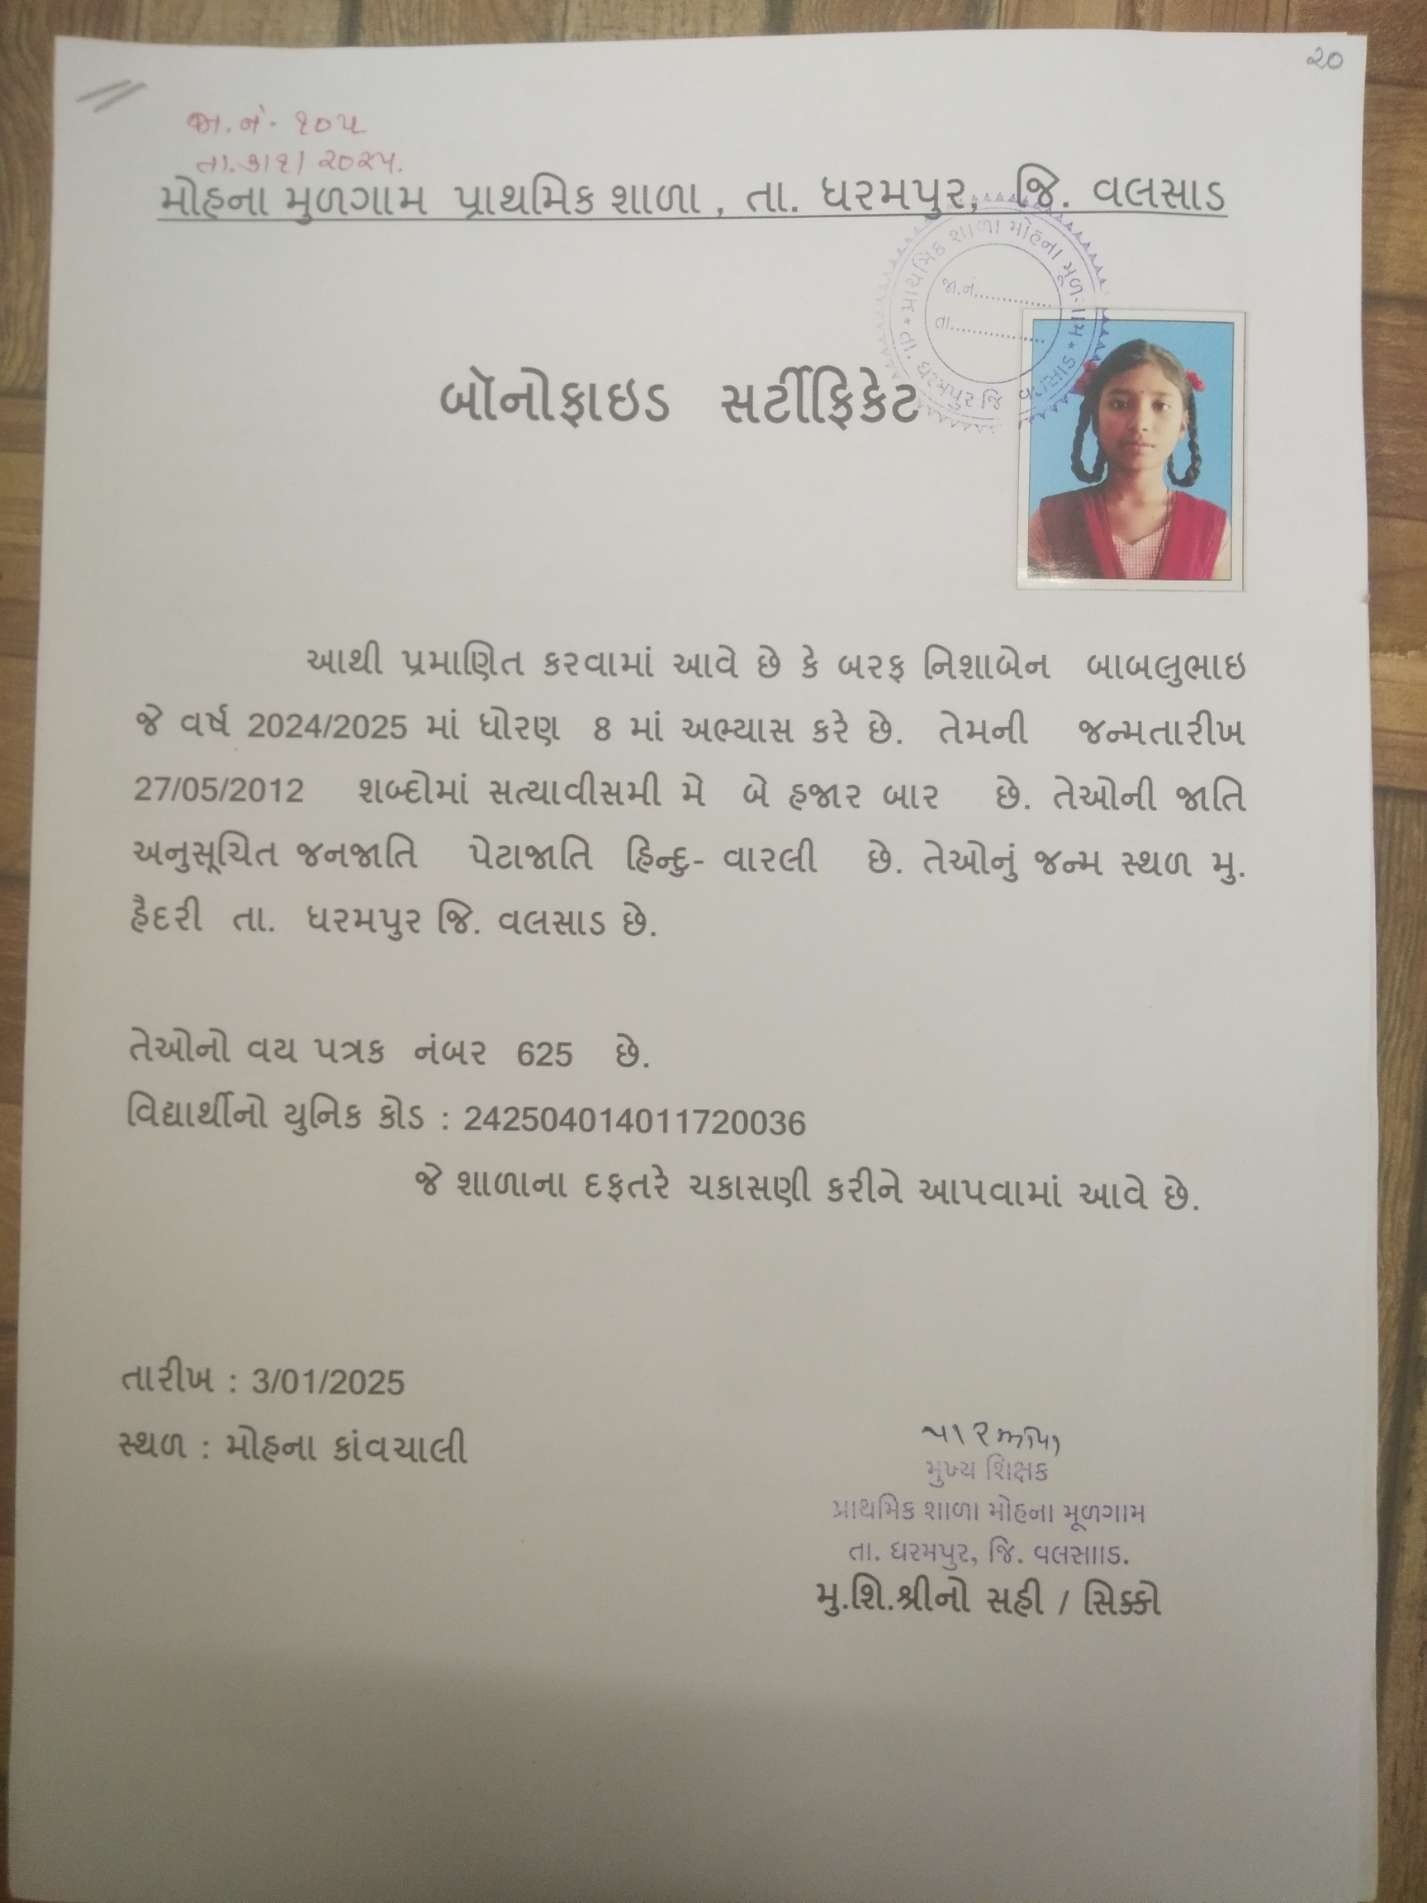 ૨૦
જા.નં- ૧૦૫
તા.૩/૧/૨૦૨૫.
મોહના મુળગામ પ્રાથમિક શાળા , તા. ધરમપુર, જિ. વલસાડ
પ્રાથમિક શાળા મોહના મૂળગામ * તા. ધરમપુર જિ વલસાડ *
જા.નં..............
તા..................
બૉનોફાઇડ સર્ટીફિકેટ
આથી પ્રમાણિત કરવામાં આવે છે કે બરફ નિશાબેન બાબલુભાઇ
જે વર્ષ 2024/2025 માં ધોરણ 8 માં અભ્યાસ કરે છે. તેમની જન્મતારીખ
27/05/2012 શબ્દોમાં સત્યાવીસમી મે બે હજાર બાર છે. તેઓની જાતિ
અનુસૂચિત જનજાતિ પેટાજાતિ હિન્દુ- વારલી છે. તેઓનું જન્મ સ્થળ મુ.
હૈદરી તા. ધરમપુર જિ. વલસાડ છે.
તેઓનો વય પત્રક નંબર 625 છે.
વિદ્યાર્થીનો યુનિક કોડ : 242504014011720036
જે શાળાના દફતરે ચકાસણી કરીને આપવામાં આવે છે.
તારીખ : 3/01/2025
સ્થળ : મોહના કાંવચાલી
મુખ્ય શિક્ષક
પ્રાથમિક શાળા મોહના મૂળગામ
તા. ધરમપુર, જિ. વલસાાડ.
મુ.શિ.શ્રીનો સહી / સિક્કો